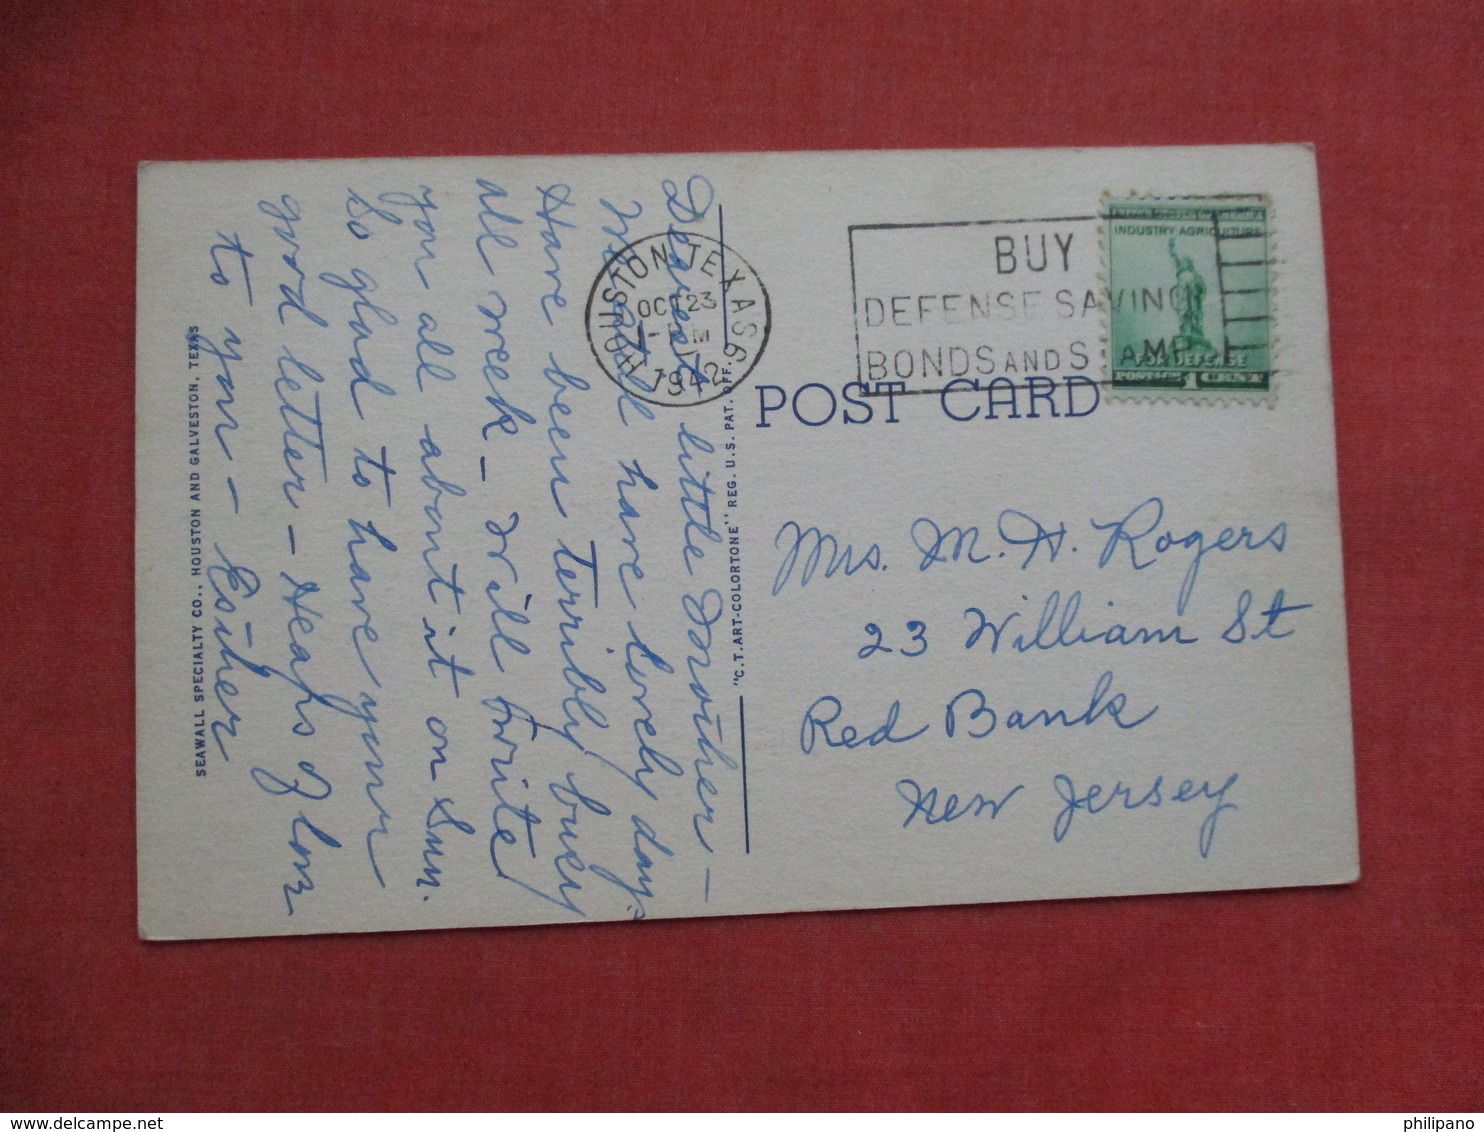 Dearest little Mother –
We all have lovely days.
Have been terribly busy
all week – Will write
you all about it on Sun.
So glad to have your
good letter – Heaps of love
to you – Esther
SEAWALL SPECIALTY CO., HOUSTON AND GALVESTON, TEXAS
"C.T. ART-COLORTONE" REG. U.S. PAT. OFF.
HOUSTON, TEXAS 6
OCT 23
PM
1942
BUY
DEFENSE SAVING
BONDS AND STAMPS
INDUSTRY AGRICULTURE
FOR DEFENSE
POSTAGE 1 CENT
POST CARD
Mrs. M. H. Rogers
23 William St
Red Bank
New Jersey
philipano